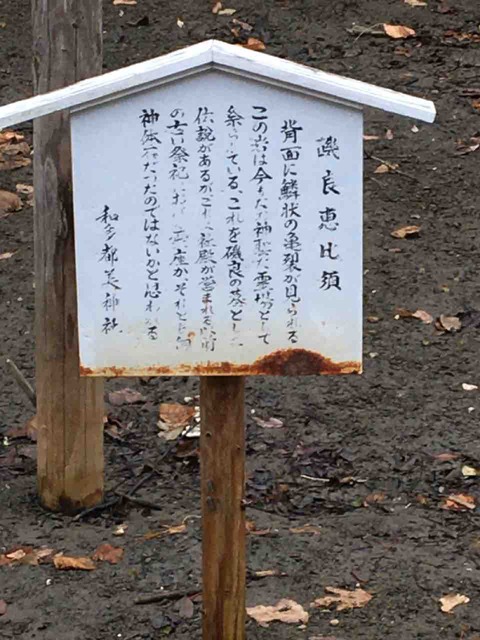 磯良恵比須
背面に鱗状の亀裂が見られる
この岩は今もなお神聖な霊場として
祭られている、これを磯良の墓とした
伝説があるがこれは社殿が営まれる以前
の古い祭祀における
神体石だったのではないかと思われる
和多都美神社